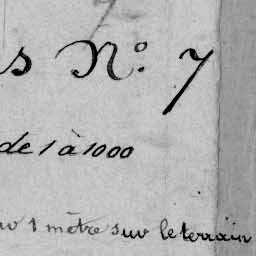 s N.o 7
de 1 à 1000
1 mètre sur le terrain